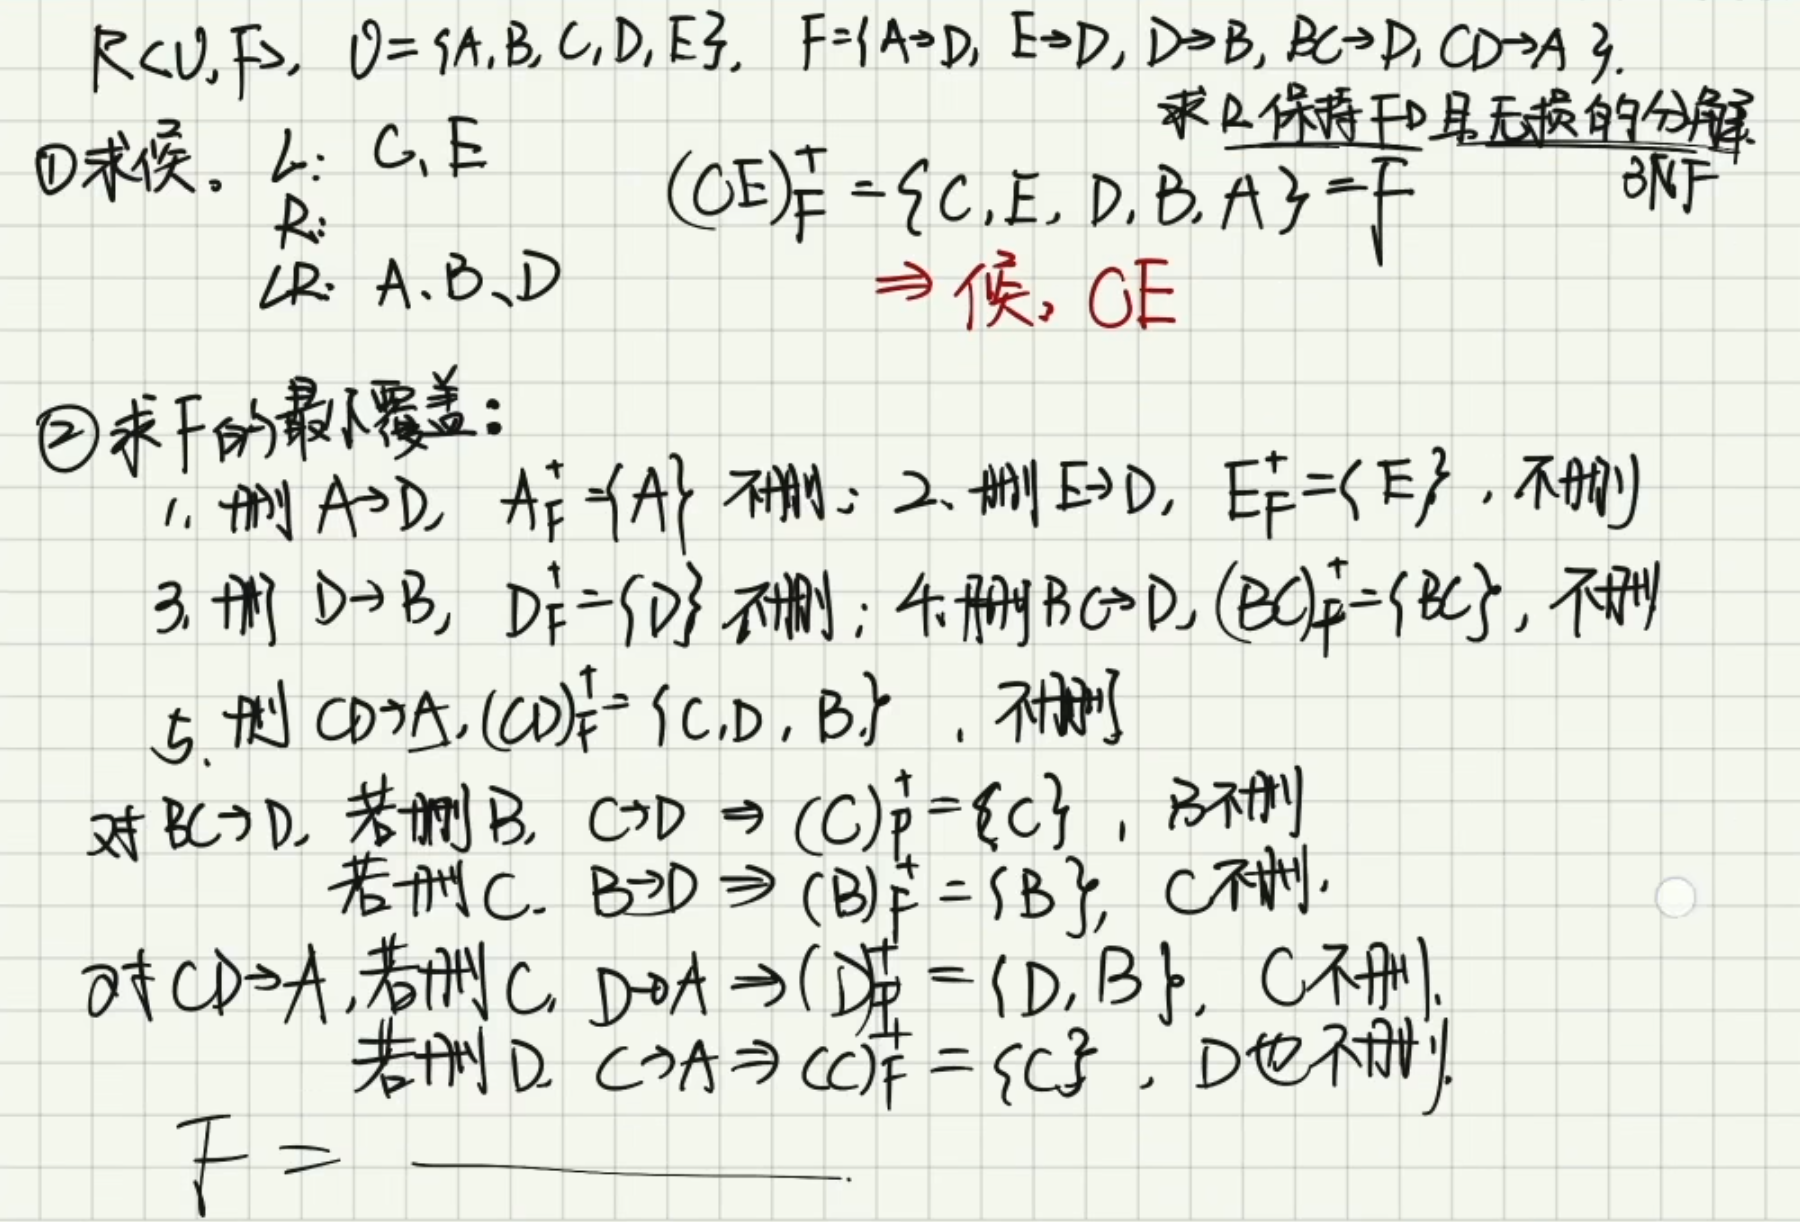 R<U,F>, U={A,B,C,D,E}, F={A→D, E→D, D→B, BC→D, CD→A}.
求R保持FD且无损的分解
3NF
①求候。 L: C、E
R:
LR: A、B、D
(CE)⁺F = {C,E,D,B,A} = F
⇒ 候。CE
②求F的最小覆盖:
1. 删 A→D, A⁺F={A} 不删; 2、删E→D, E⁺F={E}, 不删
3. 删 D→B, D⁺F={D} 不删; 4.删BC→D, (BC)⁺F={BC}, 不删
5. 删 CD→A, (CD)⁺F={C,D,B}, 不删
对BC→D, 若删B, C→D ⇒ (C)⁺F={C}, B不删
若删C. B→D ⇒ (B)⁺F={B}, C不删.
对CD→A, 若删C, D→A ⇒ (D)⁺F={D,B}, C不删.
若删D. C→A ⇒ (C)⁺F={C}, D也不删.
F = ————.